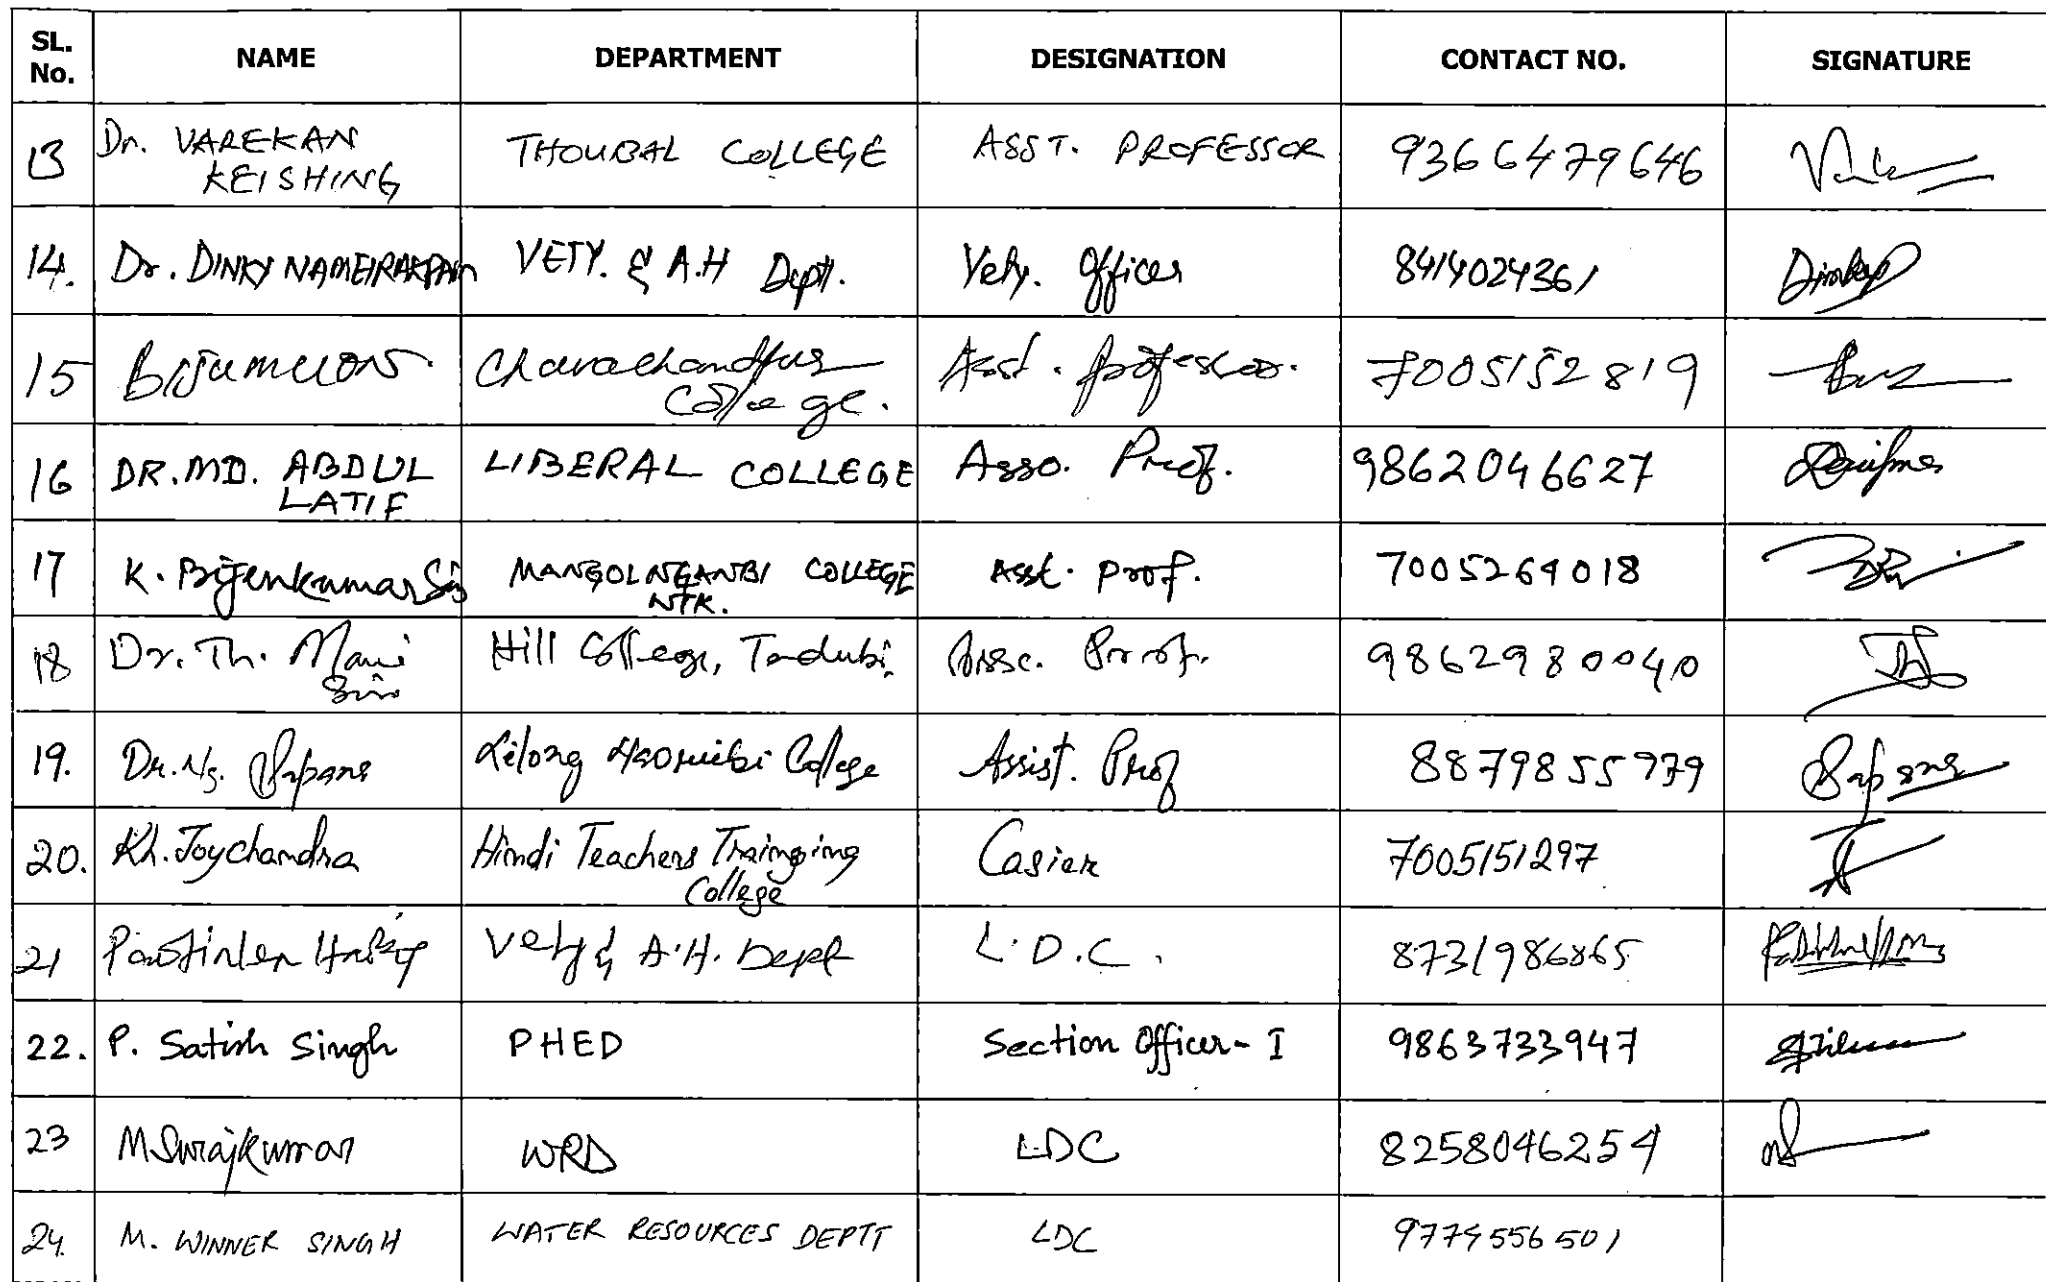 SL. No. NAME DEPARTMENT DESIGNATION CONTACT NO. SIGNATURE
13 Dr. VAREKAN THOUBAL COLLEGE ASST. PROFESSOR 9366479646
KEISHING
14. Dr. DINKY NAMEIRAKPAM VETY. & A.H Deptt. Vety. Officer 8414024361 Dinky
15 Churachandpur Asst. professor. 7005152819
College.
16 DR. MD. ABDUL LIBERAL COLLEGE Asso. Prof. 9862046627
LATIF
17 K. Bijenkumar MANGOLNGANBI COLLEGE Asst. Prof. 7005269018
NTK.
18 Dr. Th. Mani Hill College, Tadubi. Assc. Prof. 9862980040
19. Dr. Ng. Sapana Lilong Haoreibi College Assist. Prof 8879855979 Sapana
20. Kh. Joychandra Hindi Teachers Trainging Casier 7005151297
College
21 Vety & A.H. Dept L.D.C.
22. P. Satish Singh PHED Section Officer-I 9863733947
23 M Surajkumar WRD LDC 8258046254
24. M. WINNER SINGH WATER RESOURCES DEPTT LDC